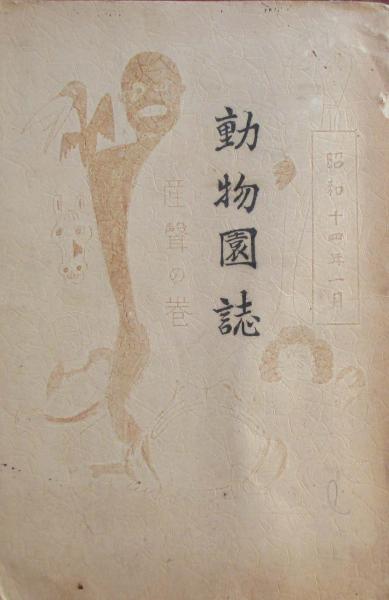 昭和十四年一月
動物園誌
産聲の巻